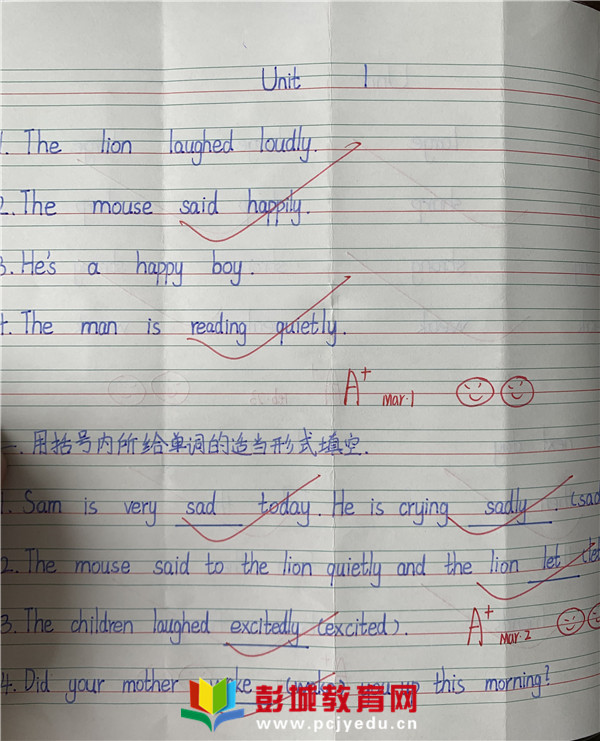 Unit 1
1. The lion laughed loudly.
2. The mouse said happily.
3. He's a happy boy.
4. The man is reading quietly.
A+ Mar.1
一. 用括号内所给单词的适当形式填空.
1. Sam is very sad today. He is crying sadly. (sad
2. The mouse said to the lion quietly and the lion let (let
3. The children laughed excitedly (excited).
A+ Mar.2
4. Did your mother up this morning?
彭城教育网
www.pcjyedu.cn